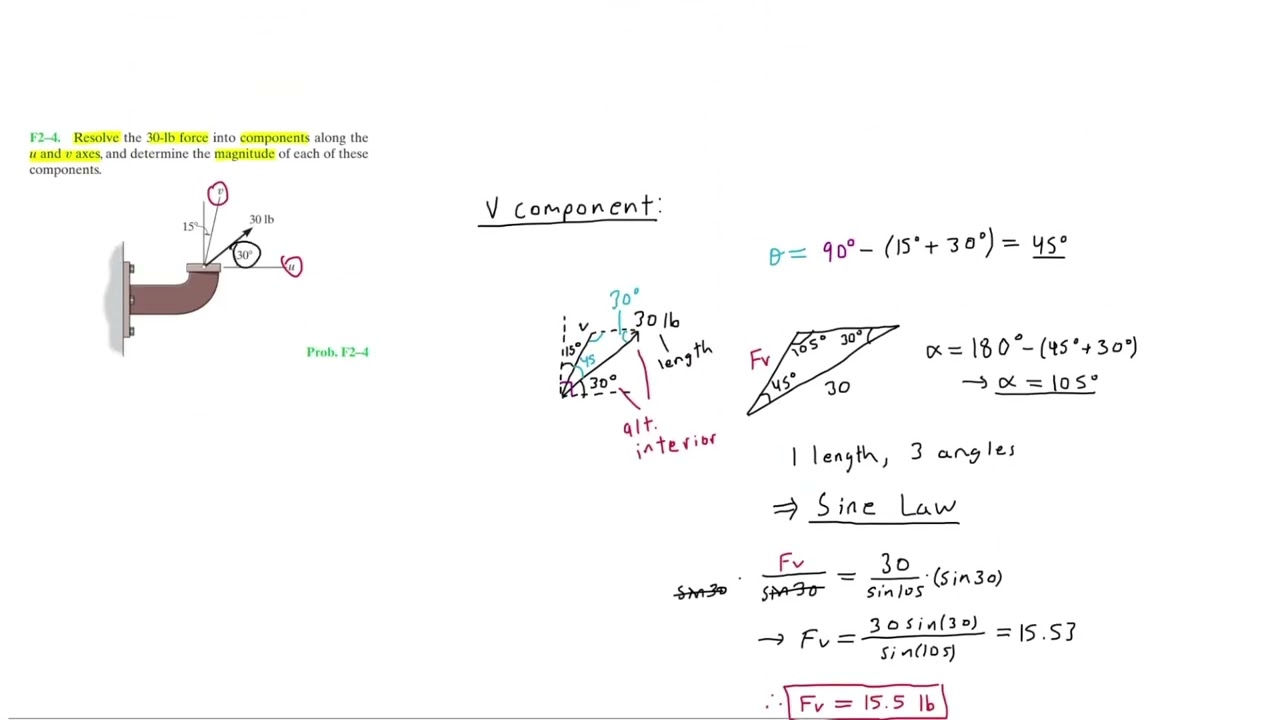 F2–4. Resolve the 30-lb force into components along the
u and v axes, and determine the magnitude of each of these
components.
v
15°
30 lb
30°
u
Prob. F2–4
V component:
θ = 90° - (15° + 30°) = 45°
30°
v
30 lb
15°
45
30°
length
alt.
interior
Fv
105°
30°
45°
30
α = 180° - (45° + 30°)
→ α = 105°
1 length, 3 angles
⇒ Sine Law
sin30 · Fv / sin30 = 30 / sin105 · (sin30)
→ Fv = 30 sin(30) / sin(105) = 15.53
∴ Fv = 15.5 lb